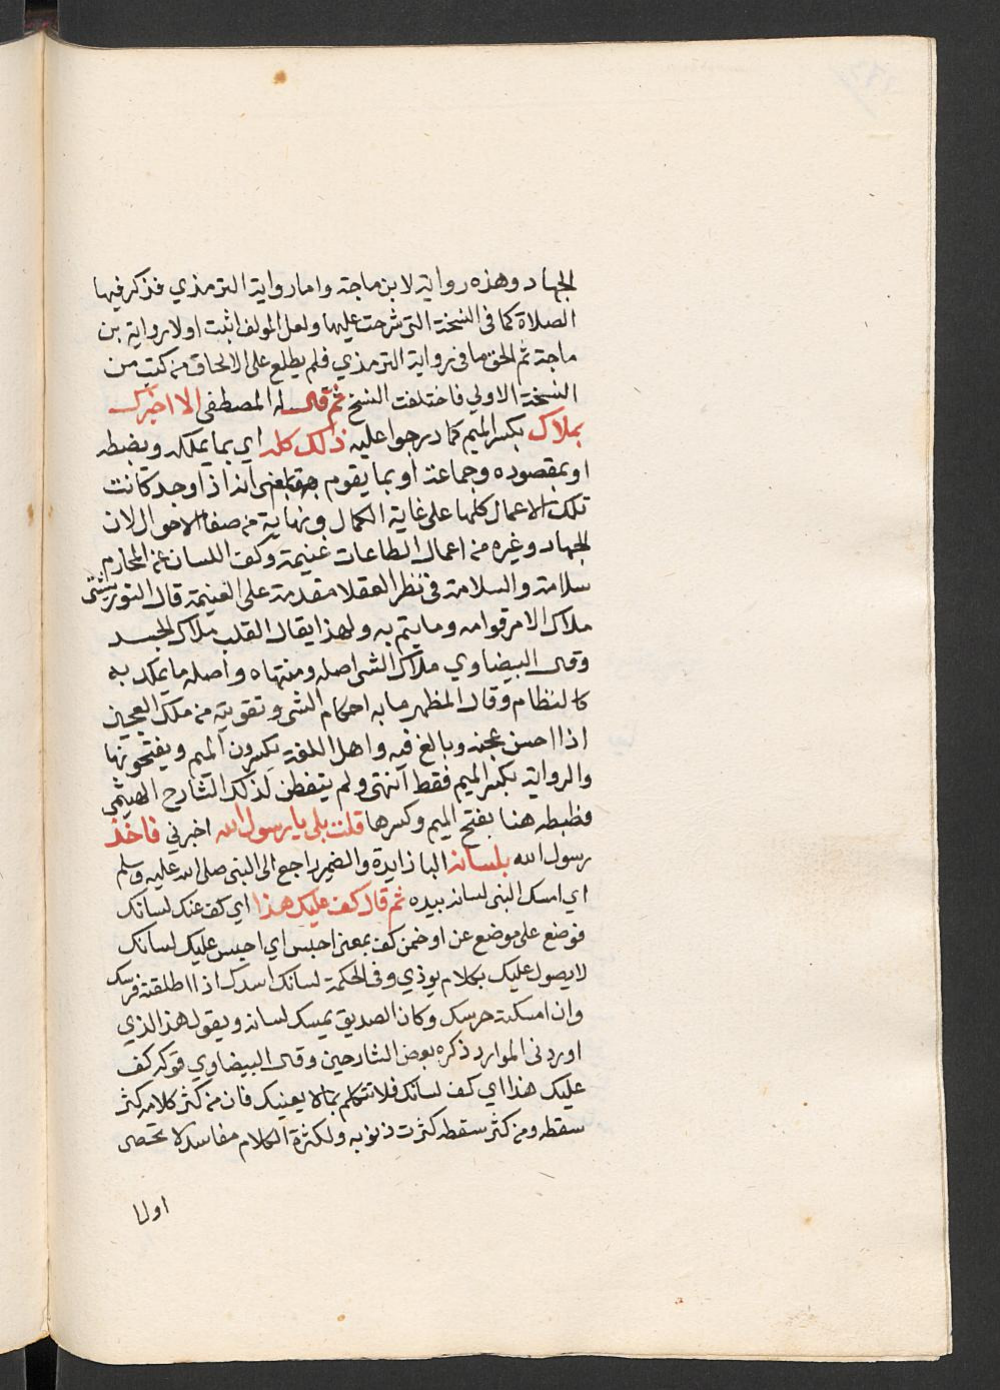 الجهاد وهذه رواية لابن ماجة واما رواية الترمذي فذكر فيها
الصلاة كما في النسخة التي شرحت عليها ولعل المولف اثبت اولا رواية بن
ماجة ثم الحق ما في رواية الترمذي فلم يطلع على الالحاق من كتب من
النسخة الاولي فاختلفت النسخ ثم قال له المصطفى الا اخبرك
بملاك بكسر الميم كما درجوا عليه ذالك كله اي بما يملكه ويضبطه
او بمقصوده وجماعة او بما يقوم به بمعنى انه اذا وجد كانت
تلك الاعمال كلها على غاية الكمال ونهاية من صفا الاحوال لان
الجهاد وغيره من اعمال الطاعات غنيمة وكف اللسان عن المحارم
سلامة والسلامة في نظر العقلا مقدمة على الغنيمة قال التوربشتى
ملاك الامر قوامه وما يتم به ولهذا يقال القلب ملاك الجسد
وقال البيضاوي ملاك الشى اصله ومنتهاه واصله ما يملك به
كالنظام وقال المظهر ما به احكام الشى وتقويته من ملك العجين
اذا احسن عجنه وبالغ فيه واهل اللغة يكسرون الميم ويفتحونها
والرواية بكسر الميم فقط انتهى ولم يتفطن لذلك الشارح الهيثمى
فظبطه هنا بفتح الميم وكسرها قلت بلى يا رسول الله اخبرني فاخذ
رسول الله بلسانه البا زايدة والضمير راجع الى النبى صلى الله عليه وسلم
اي امسك النبى لسانه بيده ثم قال كف عليك هذا اي كف عنك لسانك
فوضع على موضع عن او ضمن كف بمعنى احبس اي احبس عليك لسانك
لا يصول عليك بكلام يوذي وفي الحكمة لسانك اسدك اذا اطلقته فرسك
وان امسكته حرسك وكان الصديق يمسك لسانه ويقول هذا الذي
اوردنى الموارد ذكره بعض الشارحين وقال البيضاوي قوله كف
عليك هذا اي كف لسانك فلا تتكلم بما لا يعنيك فان من كثر كلامه كثر
سقطه ومن كثر سقطه كثرت ذنوبه ولكثرة الكلام مفاسد لا تحصى